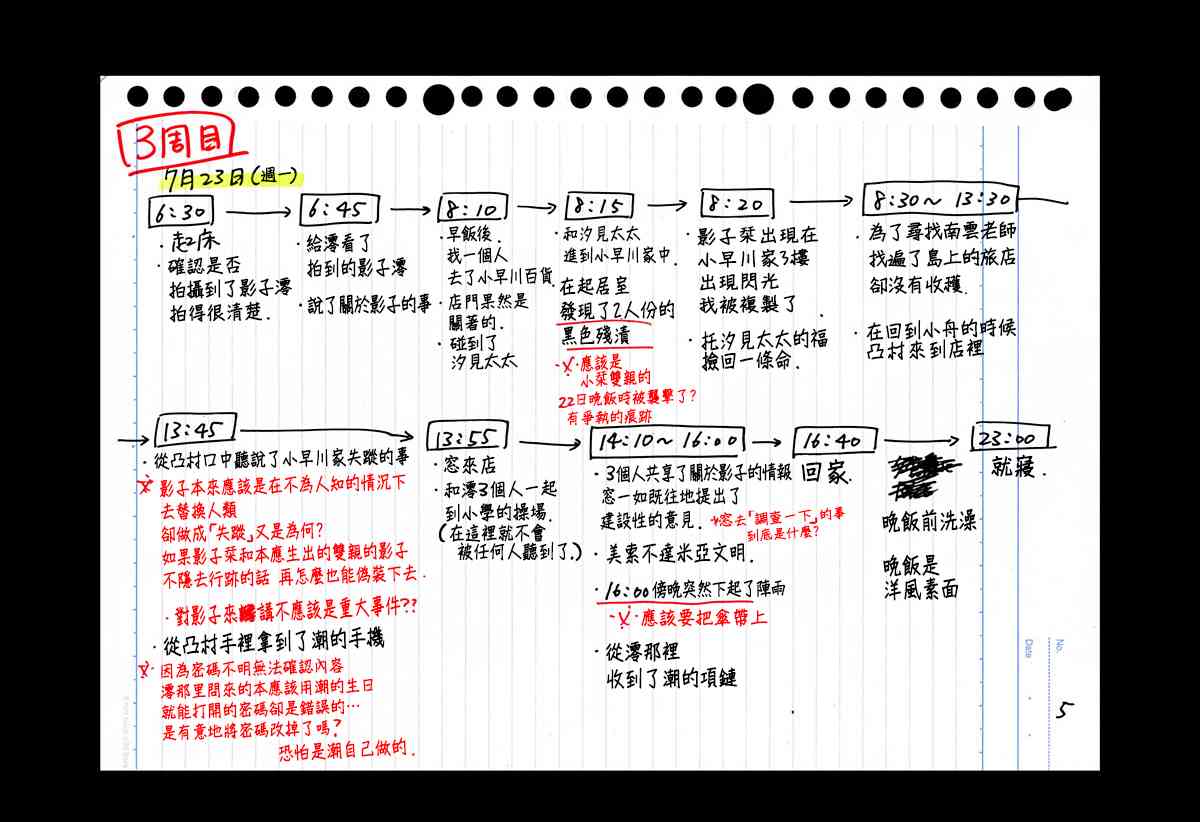 3周目
7月23日(週一)
6:30
起床
・確認是否
拍攝到了影子澪
拍得很清楚.
6:45
・給澪看了
拍到的影子澪
・說了關於影子的事
8:10
・早飯後.
找一個人
去了小早川百貨
・店門果然是
關著的.
・碰到了
汐見太太
8:15
・和汐見太太
進到小早川家中.
・在起居室
發現了2人份的
黑色殘漬
・※・應該是
小栞雙親的
22日晚飯時被襲擊了?
有爭執的痕跡
8:20
・影子栞出現在
小早川家3樓
出現閃光
我被複製了.
・托汐見太太的福
撿回一條命.
8:30～13:30
・為了尋找南雲老師
找遍了島上的旅店
卻沒有收穫.
・在回到小舟的時候
凸村來到店裡
13:45
・從凸村口中聽說了小早川家失蹤的事
※影子本來應該是在不為人知的情況下
去替換人類
卻做成「失蹤」又是為何?
如果影子栞和本應生出的雙親的影子
不隱去行跡的話 再怎麼也能偽裝下去.
・對影子來講不應該是重大事件??
・從凸村手裡拿到了潮的手機
※因為密碼不明無法確認內容
澪那里問來的本應該用潮的生日
就能打開的密碼卻是錯誤的…
是有意地將密碼改掉了嗎?
恐怕是潮自己做的.
13:55
・窓來店
・和澪3個人一起
到小學的操場.
(在這裡就不會
被任何人聽到了.)
14:10～16:00
・3個人共享了關於影子的情報
窓一如既往地提出了
建設性的意見.
→窓去「調查一下」的事
到底是什麼?
・美索不達米亞文明.
・16:00傍晚突然下起了陣雨
・※・應該要把傘帶上
・從澪那裡
收到了潮的項鏈
16:40
回家.
晚飯前洗澡
晚飯是
洋風素面
23:00
就寢.
No.
Date
5